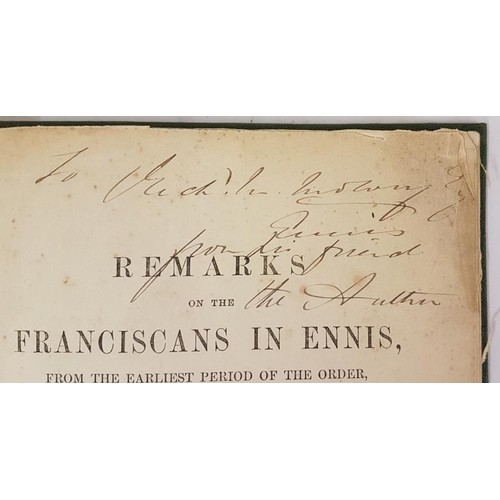 To
Ennis
from his friend
the Author
REMARKS
ON THE
FRANCISCANS IN ENNIS,
FROM THE EARLIEST PERIOD OF THE ORDER,